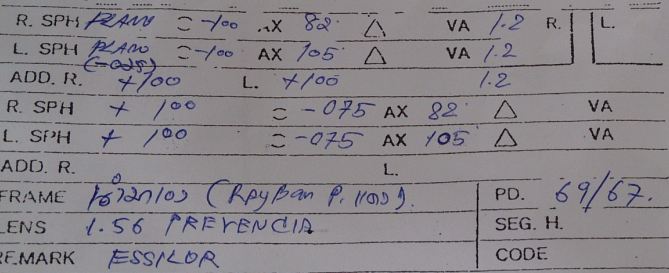 R. SPH PLANO = -100 AX 82 △ VA 1.2 R. L.
L. SPH PLANO = -100 AX 105 △ VA 1.2
(-025)
ADD. R. +100 L. +100 1.2
R. SPH + 100 = -075 AX 82 △ VA
L. SPH + 100 = -075 AX 105 △ VA
ADD. R. L.
FRAME (RayBan PD. 69/67.
LENS 1.56 PREVENCIA SEG. H.
REMARK ESSILOR CODE